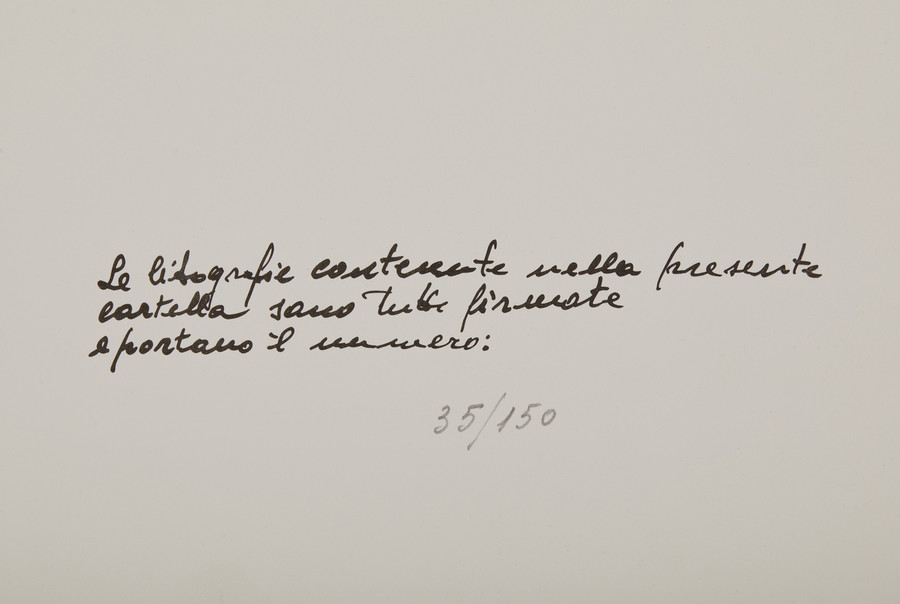 Le litografie contenente nella presente
cartella sono tutte firmate
e portano il numero:
35/150